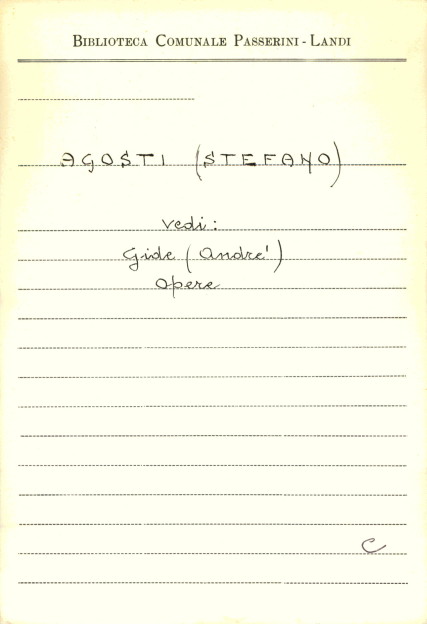 BIBLIOTECA COMUNALE PASSERINI - LANDI
AGOSTI (STEFANO)
Vedi:
Gide (André)
Opere
C